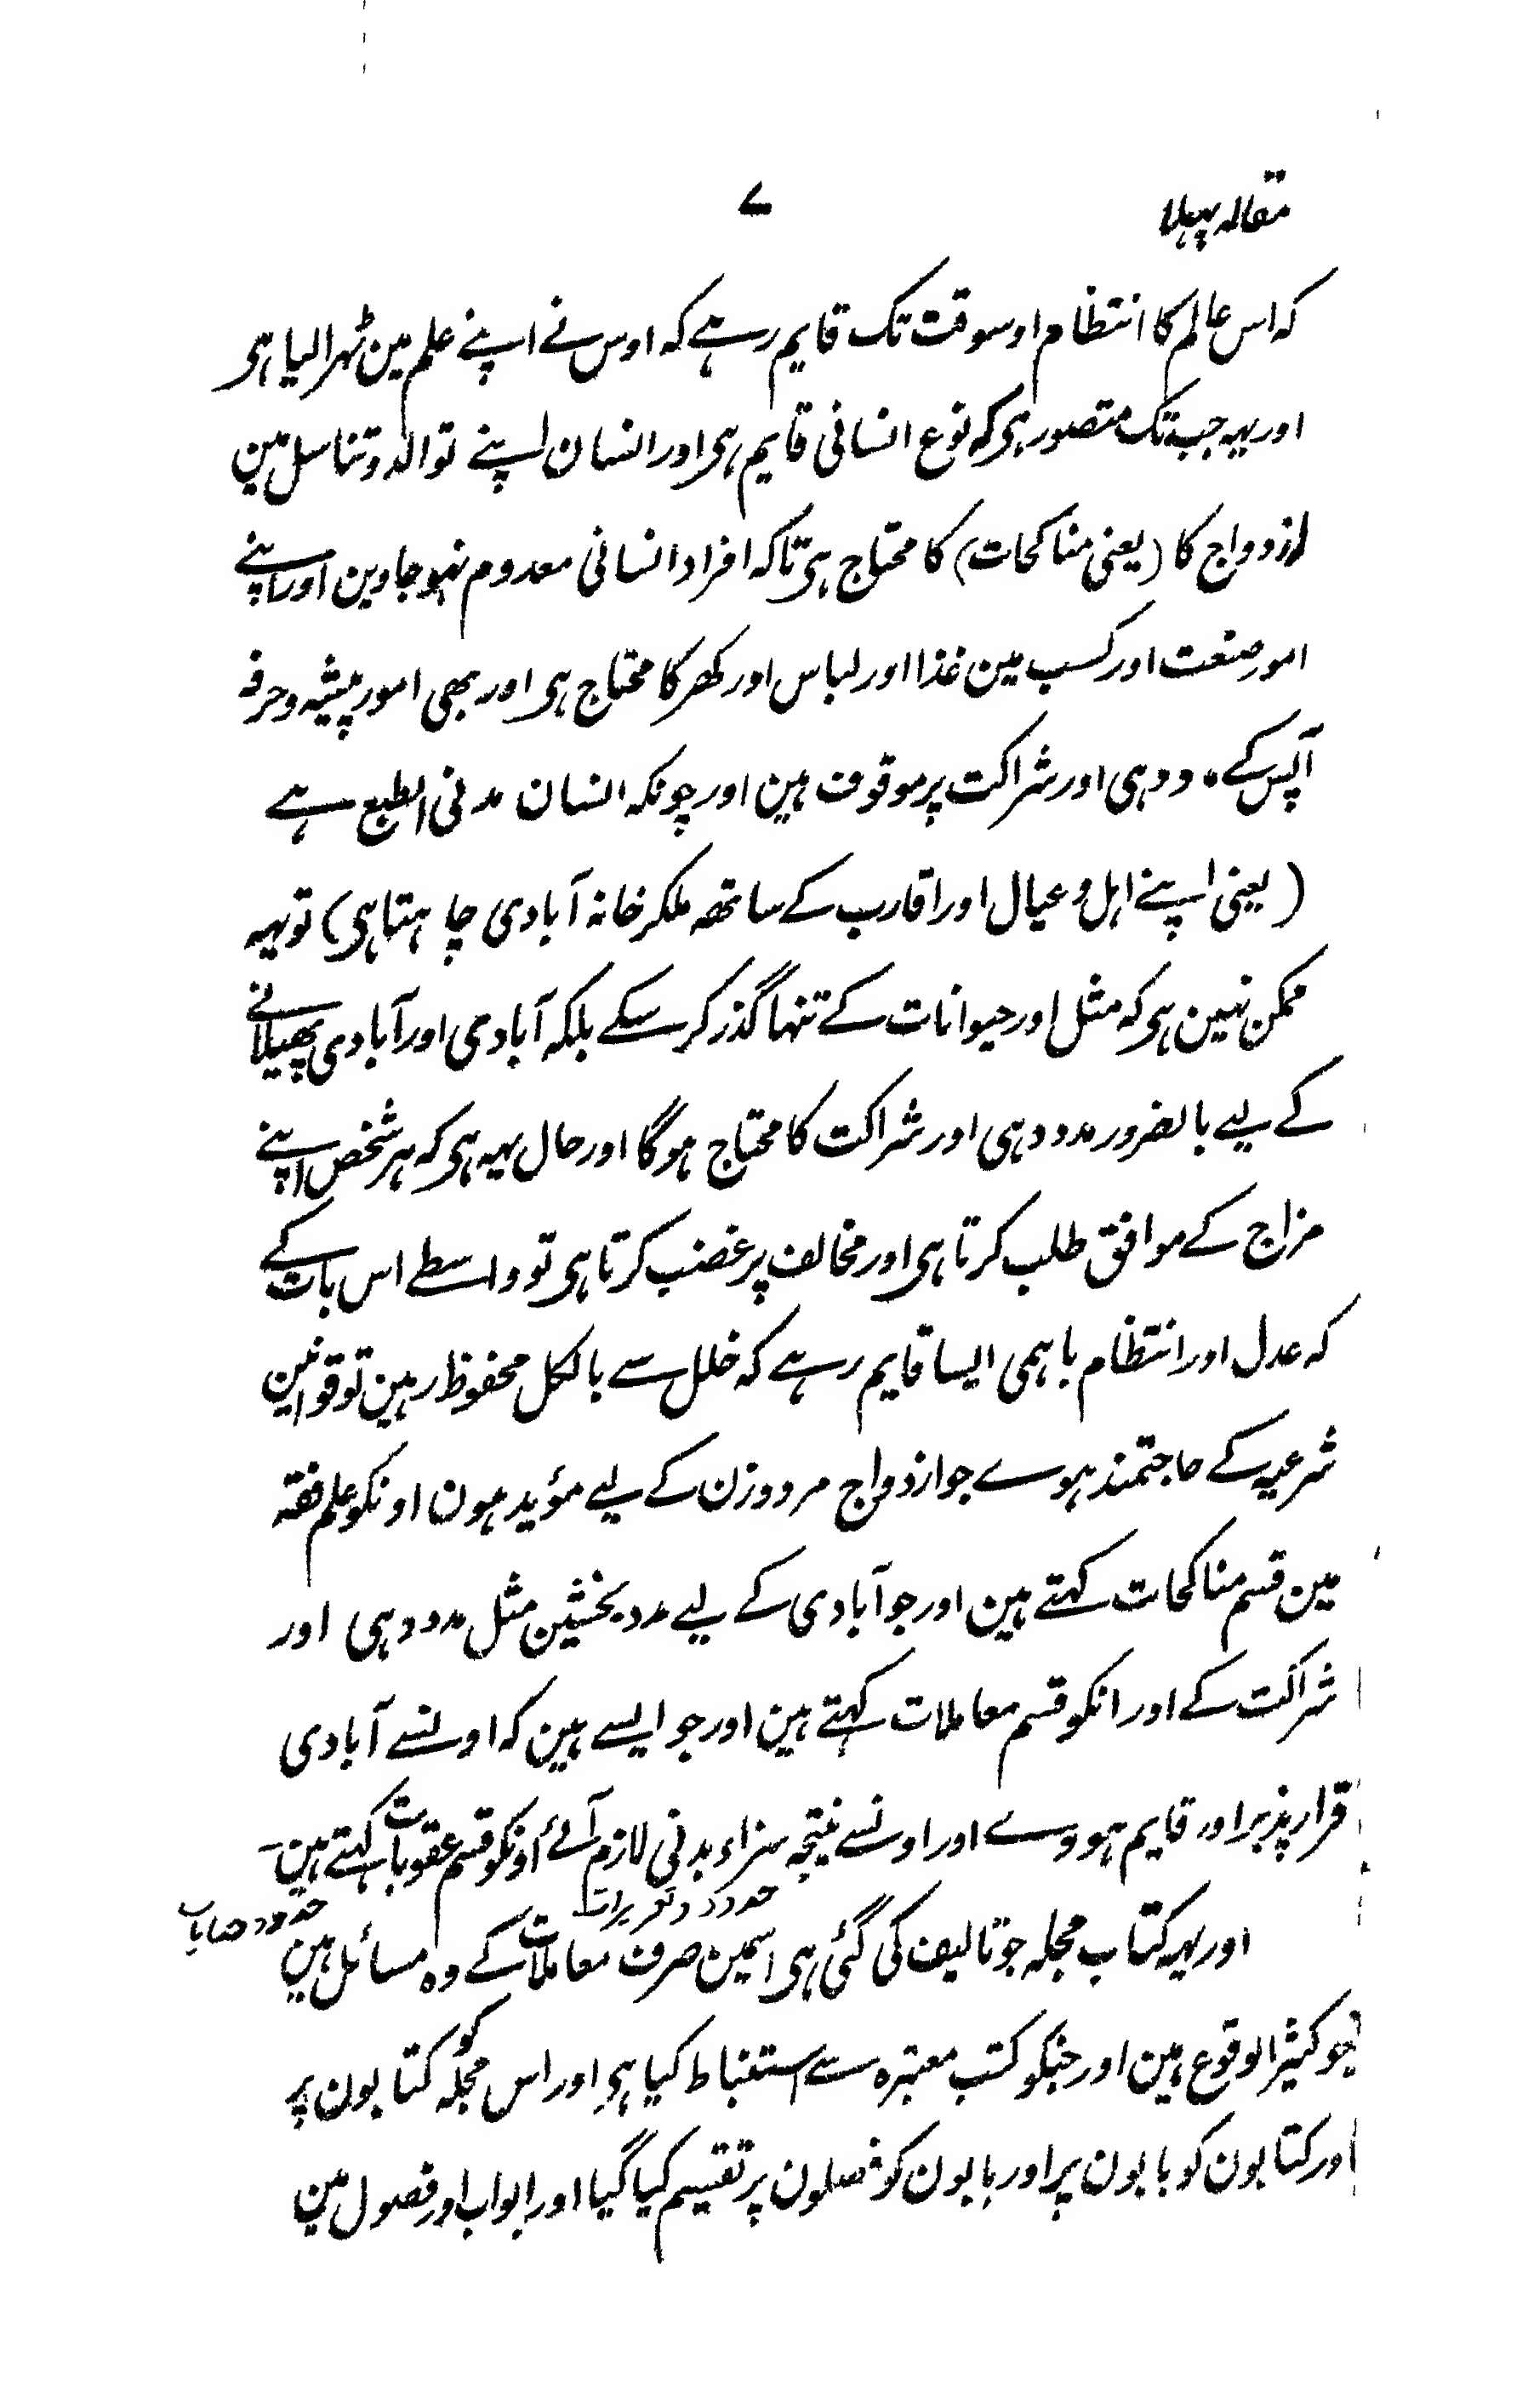 مقاله پہلا
۷
کہ اس عالم کا انتظام اوسوقت تک قایم رہے کہ اوس نے اپنے علم مین ٹہرالیا ہی
اور یہہ جب تک متصور ہی کہ نوع انسانی قایم ہی اور انسان اپنے توالد و تناسل مین
ازدواج کا (یعنی مناکحات) کا محتاج ہی تاکہ افراد انسانی معدوم نہو جاوین اور اپنے
امور صنعت اور کسب مین غذا اور لباس اور کھر کا محتاج ہی اور بھی امور پیشہ و حرفہ
آپس کے مدد دہی اور شراکت پر موقوف ہین اور چونکہ انسان مدنی الطبع ہے
(یعنی اپنے اہل و عیال اور اقارب کے ساتھہ ملکر خانہ آبادی چاہتا ہی) تو یہہ
ممکن نہین ہی کہ مثل اور حیوانات کے تنہا گذر کر سکے بلکہ آبادی اور آبادی پھیلانے
کے لیے بالضرور مدد دہی اور شراکت کا محتاج ہوگا اور حال یہہ ہی کہ ہر شخص اپنے
مزاج کے موافق طلب کرتا ہی اور مخالف پر غضب کرتا ہی تو واسطے اس بات کے
کہ عدل اور انتظام باہمی ایسا قایم رہے کہ خلل سے بالکل محفوظ رہین تو قوانین
شرعیہ کے حاجتمند ہوے جو ازدواج مرد و زن کے لیے مؤید ہون اونکو علم فقہ
مین قسم مناکحات کہتے ہین اور جو آبادی کے لیے مدد بخشین مثل مدد دہی اور
شراکت کے اور انکو قسم معاملات کہتے ہین اور جو ایسے ہین کہ اونسے آبادی
قرار پذیر اور قایم ہووے اور اونسے نتیجہ سزاء بدنی لازم آئے اونکو قسم عقوبات کہتے ہین۔
حدود و تعزیرات
حدود
اور یہہ کتاب مجلہ جو تالیف کی گئی ہی اسمین صرف معاملات کے وہ مسائل ہین
جو کثیر الوقوع ہین اور جنکو کتب معتبرہ سے استنباط کیا ہی اور اس مجلہ کو کتابون پر
اور کتابون کو بابون پر اور بابون کو فصلون پر تقسیم کیا گیا اور ابواب اور فصول مین